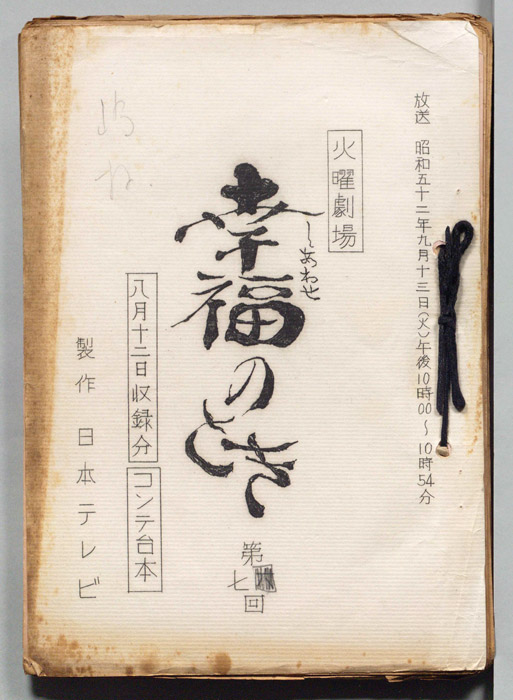 放送 昭和五十二年九月十三日(火)午後10時00〜10時54分
火曜劇場
しあわせ
幸福のとき
第七回
八月十二日収録分
コンテ台本
製作 日本テレビ